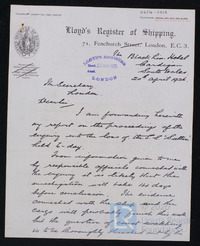 Lloyd's Register of Shipping.
71, Fenchurch Street, London, E.C.3.
The Black Lion Hotel
Cardigan
South Wales
20th April 1926
LLOYD'S REGISTER
LONDON
The Secretary
London
Dear Sir
I am forwarding herewith
my report on the proceedings of the
enquiry into the loss of the S.S.
held to-day.
From information given to me
by responsible officials connected with
the enquiry it is likely that the
investigation will take 14 days
before conclusion. The evidence
connected with the and her
cargo will this week
but the question of
is to be thoroughly